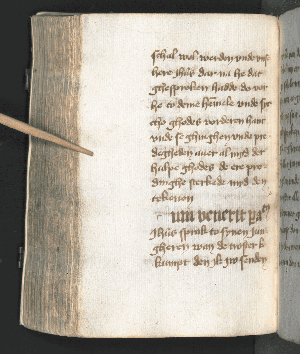 schal wol werden vnde vnse
here ihūs dar na he dat
ghesproken hadde do vor
he to deme hemele vnde sit
to ghodes vorderen hant
vnde se ghinghen vnde pre
degheden auer al myd der
hulpe ghodes de ere pre
dinghe sterkede myd den
tekenen
um venerit pa
Ihūs sprak to synen iun
gheren wan de troster k
kumpt den ik iw sende